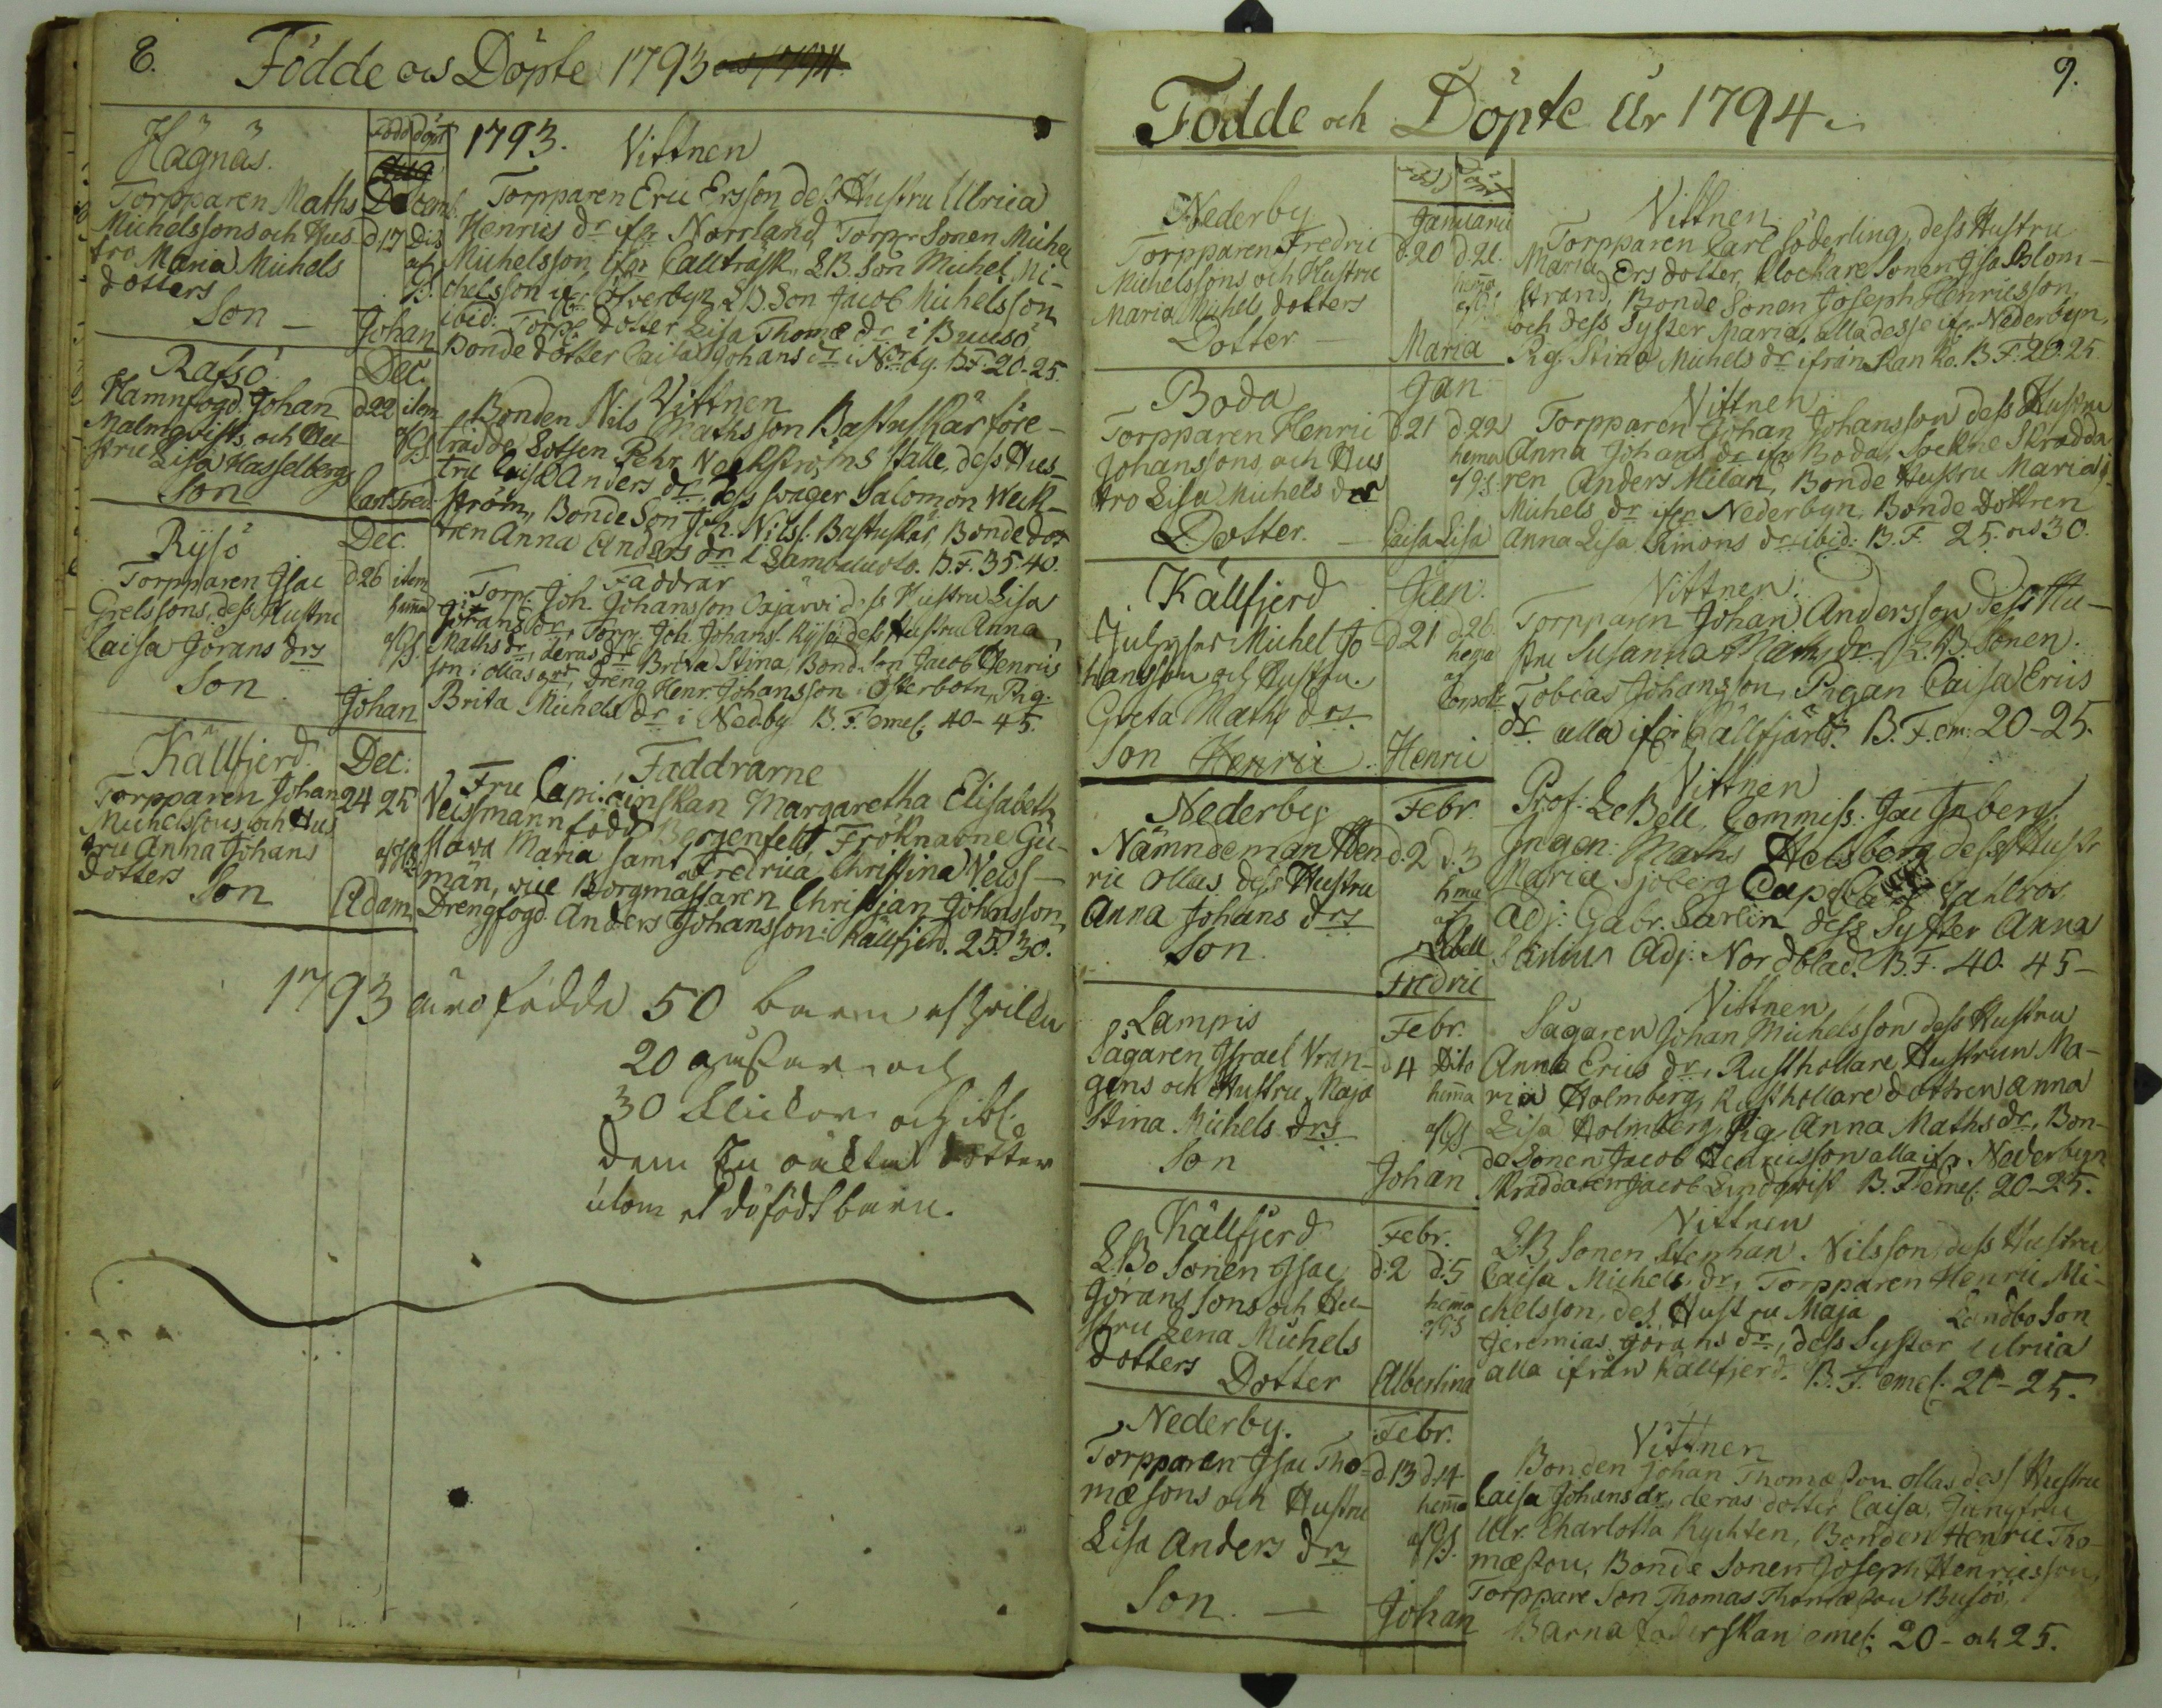 8.
Födde och Döpte 1793 och 1794
Hägnäs.
Född döpt
Torpparen Maths
Michelssons och Hus
tro Maria Michels
dotters
Son
Decemb.
d 17 Dis
af
GS.
Johan
1793. Vittnen
Torpparen Eric Ersson dess Hustru Ulrica
Henrics dr ifr Norrland, Torpr Sonen Michel
Michelsson ifr Calltråsk, LB. Son Michel Mi-
chelsson ifr Öfverbyn, LB. Son Jacob Michelsson
ibid: Torpr dotter Lisa Thomæ dr i Buusö
Bonde dotter Caisa Johans dr i Nderby. BF. 20-25.
Rafsö
Hamnfogd. Johan
Malmqvists och Hu
stru Lisa Hasselbergs
Son
Dec.
d 22 item
af GS
Carl Fred.
Vittnen
Bonden Nils Mathsson Bastuskär före-
trädde Lotsen Pehr Weckströms ställe, dess Hus-
tru Caisa Anders dr, dess swåger Salomon Weck-
ström, Bonde Son Joh. Nilss. Bastuskär, Bonde dot
tren Anna Anders dr i Sambaluoto. B.F. 35.40.
Rysö
Torpparen Isac
Grelssons, dess Hustru
Caisa Jörans drs
Son
Dec.
d 26 item
hemma
af GS.
Johan
Faddrar
Torpr. Joh. Johansson Oxjärvi dess Hustru Lisa
Jörans dr, Torpr. Joh. Johanss. Rysö dess Hustru Anna
Maths dr, deras dr Brita Stina, Bond. Son Jacob Henrics
son i Ollas, Dreng Henr. Johansson i Österbotn, Pig.
Brita Michels dr i Nedby B. F. emel. 40-45.
Källfjerd.
Torpparen Johan
Michelssons och Hus
tru Anna Johans
dotters
Son
Dec:
24 25
af GS
Adam
Faddrarne
Fru Capitainskan Margaretha Elisabeth
Veissmann född Bergenfelt Fröknarne Gu-
stava Maria samt Fredrica Christina Veiss-
män, vice Borgmästaren Christjan Johnsson
Drengfogd. Anders Johansson i Källfjerd. 25. 30.
1793 äro födda 50 barn af hvilka
20 gossar och
30 flickor och ibl.
dem En oäkta dotter
utom et dödfödt barn.
9.
Födde och Döpte År 1794
Född Döpt
Nederby
Torpparen Fredric
Michelssons och Hustru
Maria Michels dotters
Dotter
Januarii
d. 20 d. 21.
hemma
af GS.
Maria
Vittnen
Torpparen Carl Söderling, dess Hustru
Maria Ers dotter, Klockare Sonen Isa Blom-
strand, Bonde Sonen Joseph Henricsson,
och dess Syster Maria, alla desse ifr. Nederbyn,
Pig. Stina Michels dr ifrån Ranko. B.F. 20.25
Boda
Torpparen Henric
Johanssons och Hus
tro Lisa Michels drs
Dotter.
Jan
d 21 d. 22
hema
af GS.
Caisa Lisa
Vittnen
Torpparen Johan Johansson dess Hustru
Anna Johans dr ifr Boda, Sockne Skrädda
ren Anders Milan, Bonde Hustru Maria
Michels dr ifrn Nederbyn, Bonde Dottren
Anna Lisa Simons dr ibid: B. F. 25. och 30.
Källfjerd
Julhyser Michel Jo
hansson och Hustru.
Greta Maths drs
Son Henric
Jan:
d 21 d. 26.
hema
af
Henric
Vittnen.
Torpparen Johan Andersson dess Hu-
stru Susanna Maths dr, L.B. Sonen
Tobias Johansson, Pigan Caisa Erics
dr alla ifr Källfjärd. B. F. em. 20-25.
Nederby
Nämndeman Hen
ric Ollas dess Hustru
Anna Johans drs
Son
Febr.
d. 2 d. 3
hma
af
LeBell
Fredric
Vittnen
Prof: LeBell, Commiss. Jac Inberg,
Ingen: Maths Helsberg, dess Hustr
Maria Sjöberg Vahlros
adj: Gabr. Sarlin dess Syster Anna
Adj: Nordblad. B.F. 40. 45-
Lampis
Sågaren Israel Vran-
gens och Hustru Maja
Stina Michels drs
Son
Febr.
d 4 dito
hemma
af GS
Johan
Vittnen
Sågaren Johan Michelsson dess Hustru
Anna Erics dr, Rusthollare Hustrun Ma-
ria Holmberg, Rusthollare dottren Anna
Lisa Holmberg, Pig. Anna Maths dr, Bon-
de Sonen Jacob Henricsson alla ifr. Nederbyn
Skräddaren Jacob Lindqvist B. F. emel. 20-25.
Källfjerd
L.Bo Sonen Isac
Jöranssons och Hu-
stru Lena Michels
dotters Dotter
Febr.
d. 2 d. 5
hemma
af GS
Albertina
Vittnen
L.B. Sonen Stephan Nilsson, dess Hustru
Caisa Michels dr, Torpparen Henric Mi-
chelsson, des Hustru Maja Landbo Son
Jeremias Jörans dr, dess Syster Ulrica
alla ifrån Källfjerd. B. F. emel: 20-25.
Nederby.
Torpparen Isac Tho-
mæsons och Hustru
Lisa Anders drs
Son.
Febr.
d 13 d. 14
hemma
af GS.
Johan
Vittnen
Bonden Johan Thomæson Ollas dess Hustru
Caisa Johans dr, deras dotter Caisa, Jungfru
Ulr. Charlotta Rychten, Bonden Henric Tho-
mæson, Bonde Sonen Joseph Henricsson,
Torppare Son Thomas Thomæson Busöö,
Barnaföderskan emel: 20- och 25.